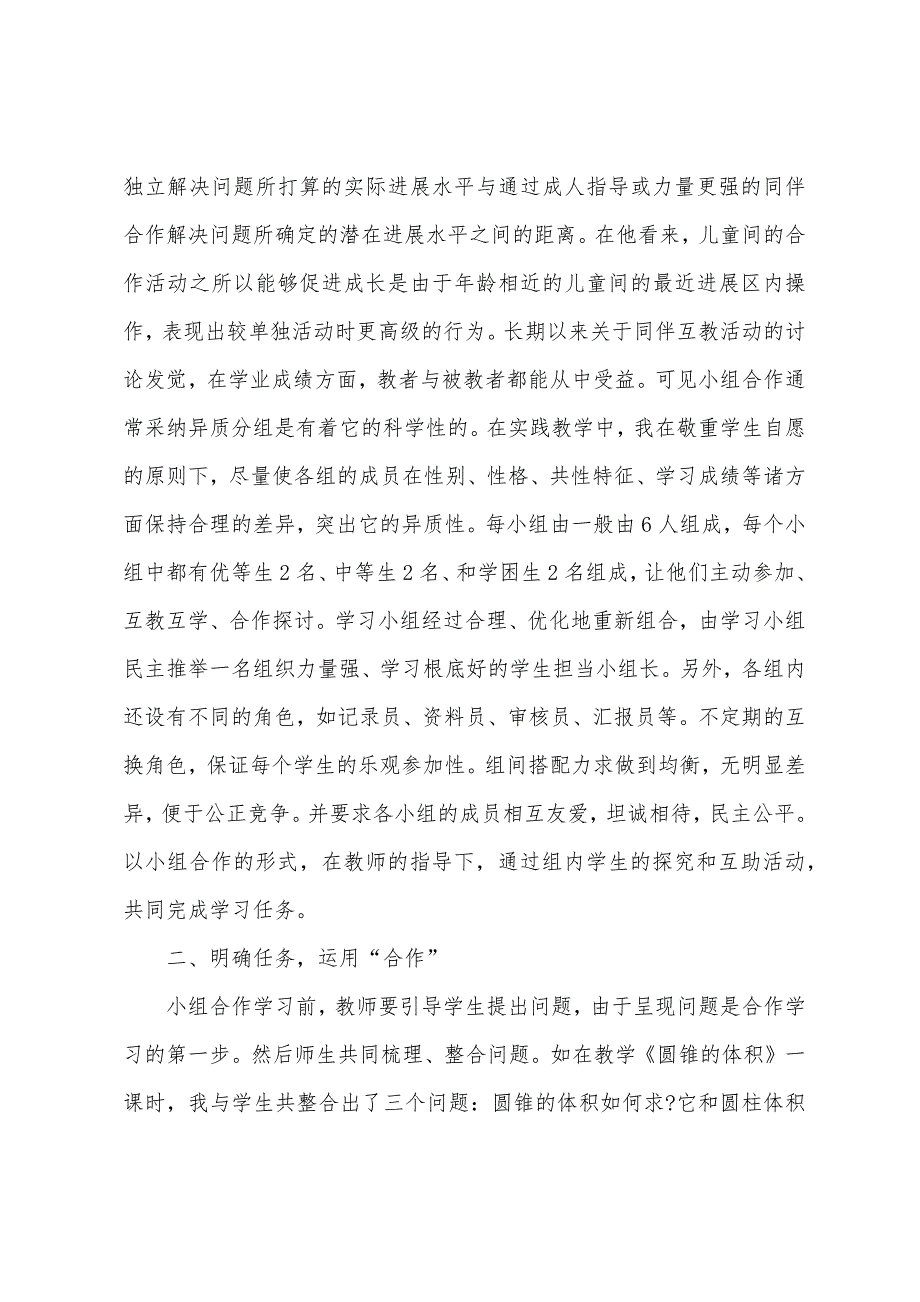 独立解决问题所打算的实际进展水平与通过成人指导或力量更强的同伴
合作解决问题所确定的潜在进展水平之间的距离。在他看来，儿童间的合
作活动之所以能够促进成长是由于年龄相近的儿童间的最近进展区内操
作，表现出较单独活动时更高级的行为。长期以来关于同伴互教活动的讨
论发觉，在学业成绩方面，教者与被教者都能从中受益。可见小组合作通
常采纳异质分组是有着它的科学性的。在实践教学中，我在敬重学生自愿
的原则下，尽量使各组的成员在性别、性格、共性特征、学习成绩等诸方
面保持合理的差异，突出它的异质性。每小组由一般由6人组成，每个小
组中都有优等生2名、中等生2名、和学困生2名组成，让他们主动参加、
互教互学、合作探讨。学习小组经过合理、优化地重新组合，由学习小组
民主推举一名组织力量强、学习根底好的学生担当小组长。另外，各组内
还设有不同的角色，如记录员、资料员、审核员、汇报员等。不定期的互
换角色，保证每个学生的乐观参加性。组间搭配力求做到均衡，无明显差
异，便于公正竞争。并要求各小组的成员相互友爱，坦诚相待，民主公平。
以小组合作的形式，在教师的指导下，通过组内学生的探究和互助活动，
共同完成学习任务。
二、明确任务，运用“合作”
小组合作学习前，教师要引导学生提出问题，由于呈现问题是合作学
习的第一步。然后师生共同梳理、整合问题。如在教学《圆锥的体积》一
课时，我与学生共整合出了三个问题：圆锥的体积如何求?它和圆柱体积